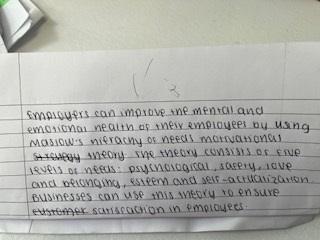 1/3
Employers can improve the mental and
emotional health of their employees by using
Maslow's hierachy of needs motivational
strategy theory. The theory consists of five
levels of needs: psychological, safety, love
and belonging, esteem and self-actualization.
Businesses can use this theory to ensure
customer satisfaction in employees.